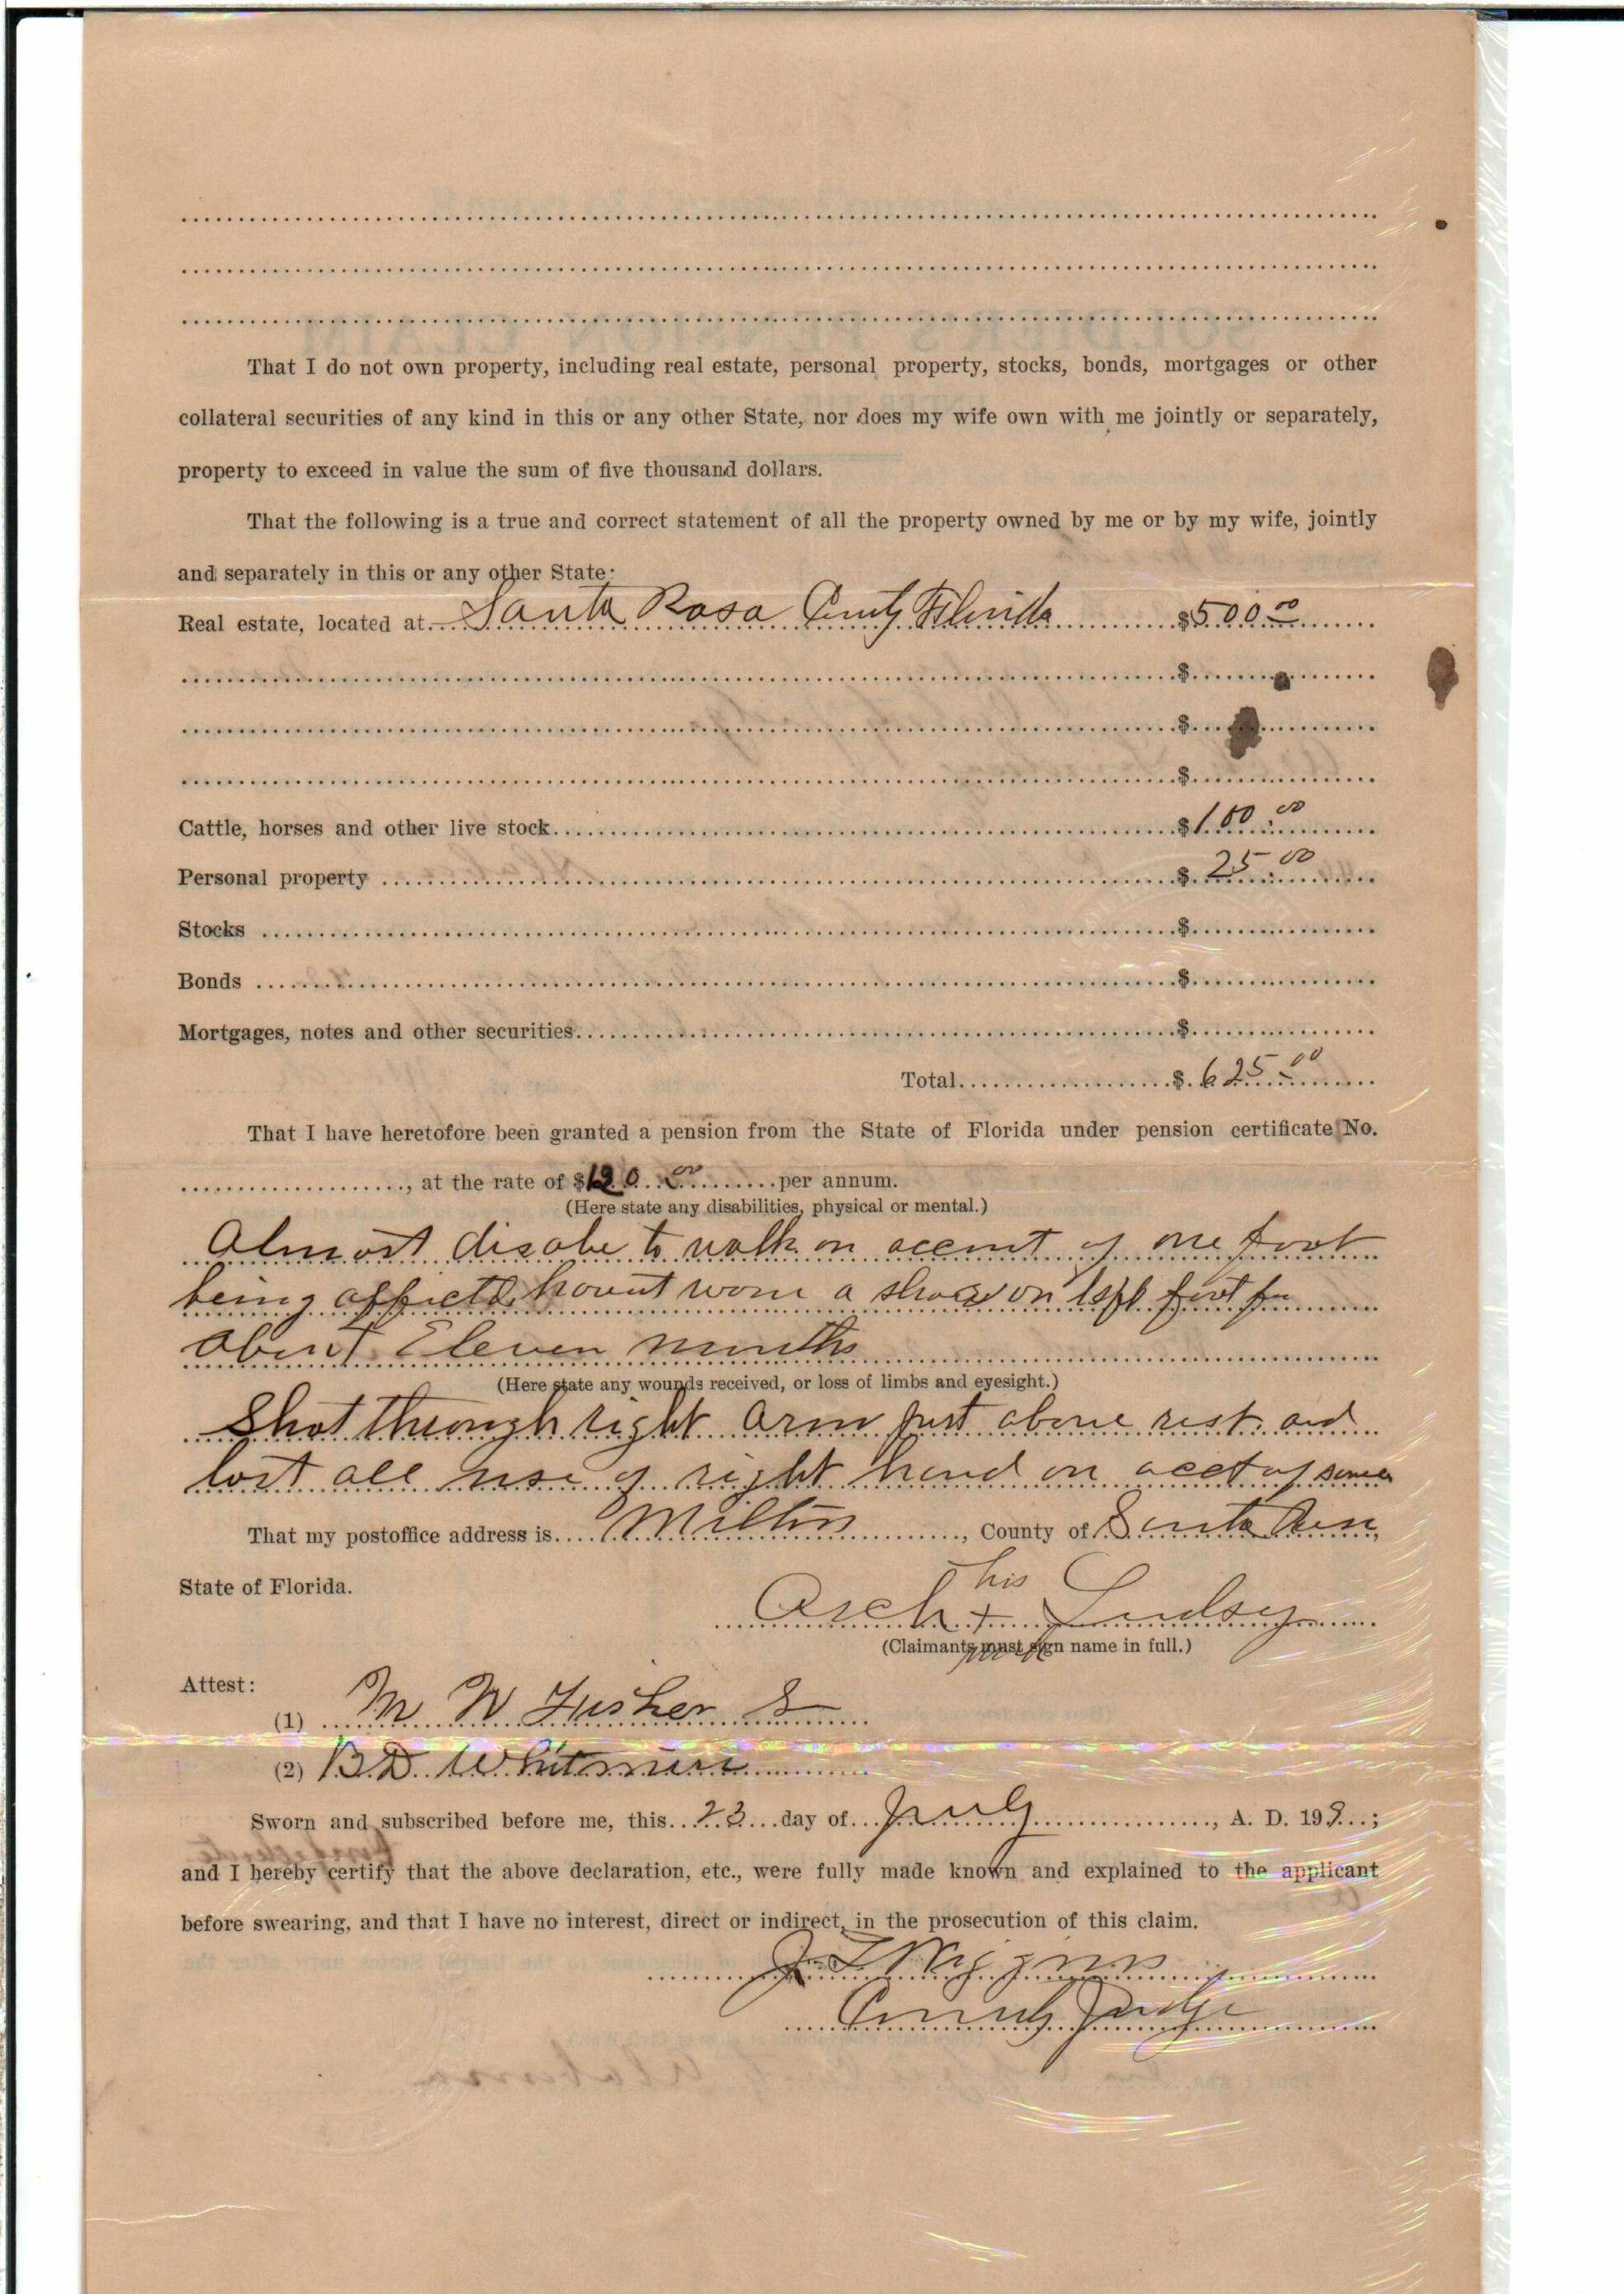 That I do not own property, including real estate, personal property, stocks, bonds, mortgages or other
collateral securities of any kind in this or any other State, nor does my wife own with me jointly or separately,
property to exceed in value the sum of five thousand dollars.
That the following is a true and correct statement of all the property owned by me or by my wife, jointly
and separately in this or any other State:
Real estate, located at Santa Rosa County Florida $500.00
$
$
$
Cattle, horses and other live stock $100.00
Personal property $25.00
Stocks $
Bonds $
Mortgages, notes and other securities $
Total $625.00
That I have heretofore been granted a pension from the State of Florida under pension certificate No.
, at the rate of $120.00 per annum.
(Here state any disabilities, physical or mental.)
Almost disabe to walk on account of one foot
being affictd, havent worn a shoe on left foot for
about Eleven months
(Here state any wounds received, or loss of limbs and eyesight.)
Shot through right arm just above rest and
lost all use of right hand on acct of same
That my postoffice address is Milton, County of Santa Rosa,
State of Florida.
his
Arch + Lindsey
mark
(Claimants must sign name in full.)
Attest:
(1) M W Fisher
(2) B D Whitmire
Sworn and subscribed before me, this 23 day of July, A. D. 199;
and I hereby certify that the above declaration, etc., were fully made known and explained to the applicant
before swearing, and that I have no interest, direct or indirect, in the prosecution of this claim.
J T Wiggins
County Judge